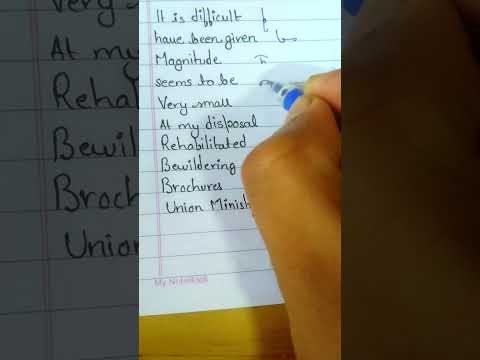 It is difficult
have been given
Magnitude
seems to be
Very small
At my disposal
Rehabilitated
Bewildering
Brochures
Union Minis
My Notebook